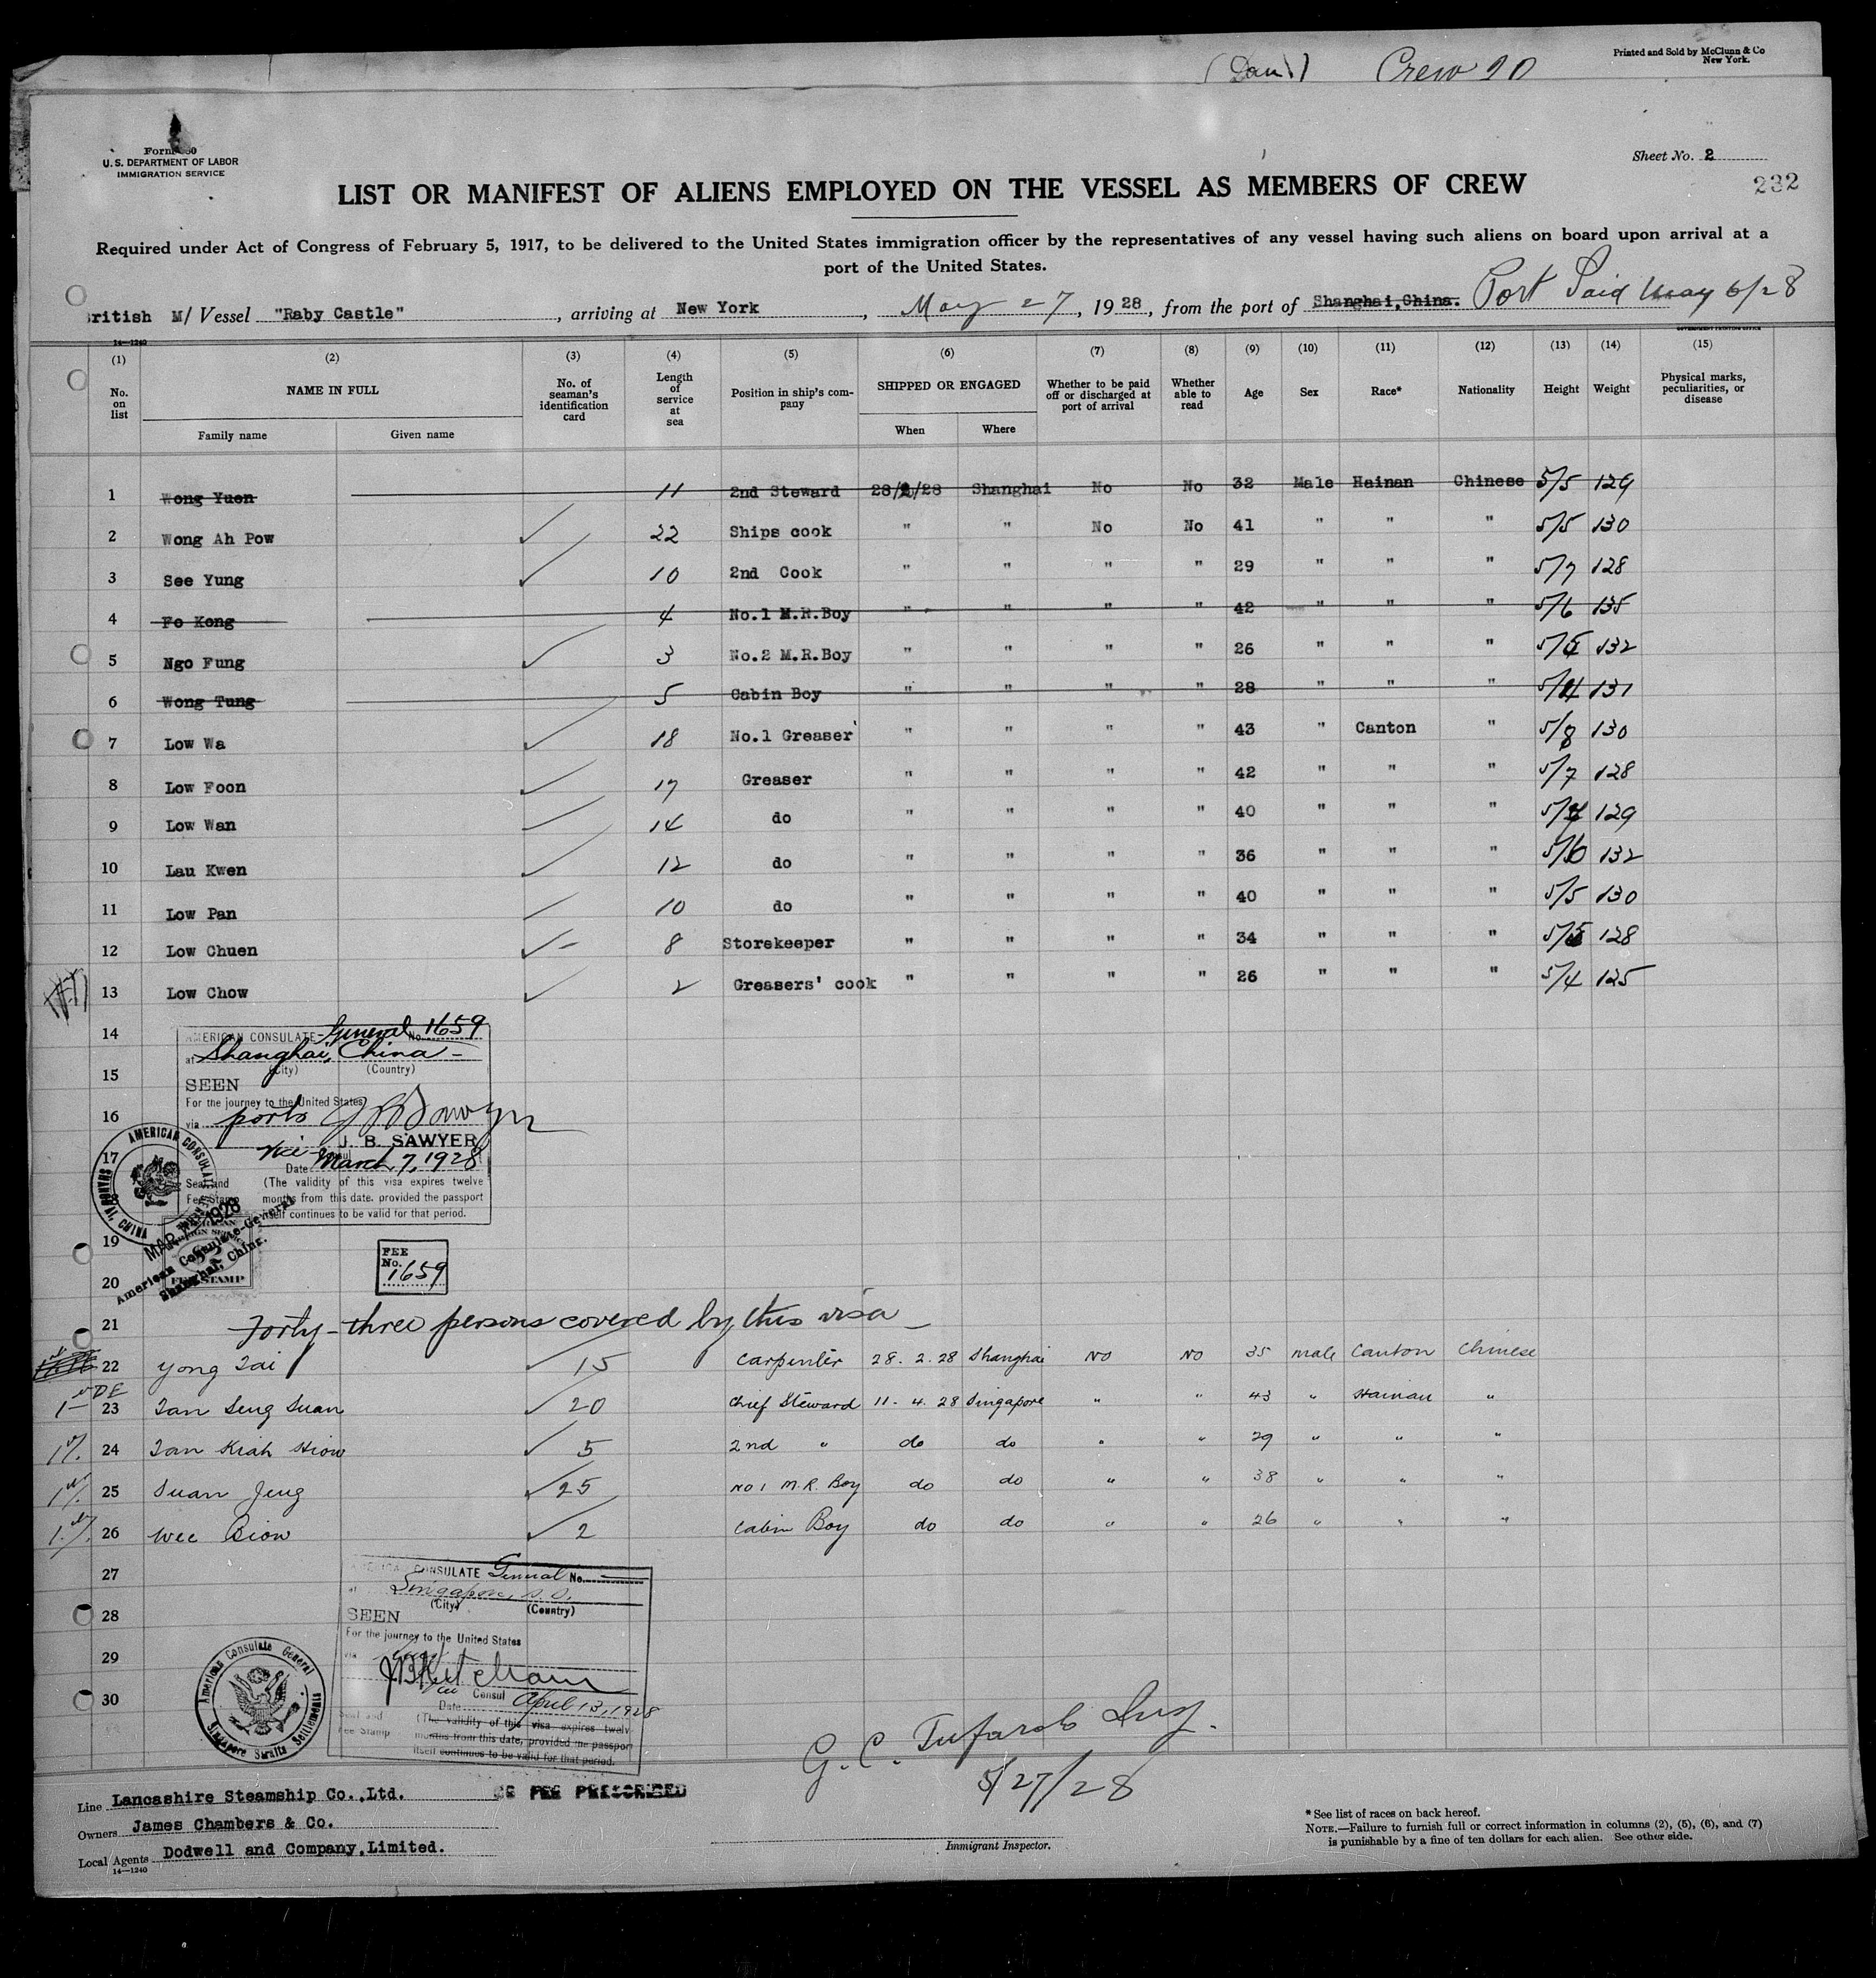 Printed and Sold by McClunn & Co
New York.
Crew 20
Form 680
U. S. DEPARTMENT OF LABOR
IMMIGRATION SERVICE
Sheet No. 2
232
LIST OR MANIFEST OF ALIENS EMPLOYED ON THE VESSEL AS MEMBERS OF CREW
Required under Act of Congress of February 5, 1917, to be delivered to the United States immigration officer by the representatives of any vessel having such aliens on board upon arrival at a
port of the United States.
British M/ Vessel "Raby Castle", arriving at New York, May 27, 1928, from the port of Shanghai,China. Port Said May 6/28
14—1240
GOVERNMENT PRINTING OFFICE
(1) (2) (3) (4) (5) (6) (7) (8) (9) (10) (11) (12) (13) (14) (15)
No. on list
NAME IN FULL
Family name
Given name
No. of seaman's identification card
Length of service at sea
Position in ship's company
SHIPPED OR ENGAGED
When
Where
Whether to be paid off or discharged at port of arrival
Whether able to read
Age
Sex
Race*
Nationality
Height
Weight
Physical marks, peculiarities, or disease
1 Wong Yuen 11 2nd Steward 28/2/28 Shanghai No No 32 Male Hainan Chinese 5/5 129
2 Wong Ah Pow ✓ 22 Ships cook " " No No 41 " " " 5/5 130
3 See Yung ✓ 10 2nd Cook " " " " 29 " " " 5/7 128
4 Fo Kong 4 No.1 M.R.Boy " " " " 42 " " " 5/6 135
5 Ngo Fung ✓ 3 No.2 M.R.Boy " " " " 26 " " " 5/5 132
6 Wong Tung 5 Cabin Boy " " " " 28 " " " 5/4 131
7 Low Wa ✓ 18 No.1 Greaser " " " " 43 " Canton " 5/8 130
8 Low Foon ✓ 17 Greaser " " " " 42 " " " 5/7 128
9 Low Wan ✓ 14 do " " " " 40 " " " 5/4 129
10 Lau Kwen ✓ 12 do " " " " 36 " " " 5/6 132
11 Low Pan ✓ 10 do " " " " 40 " " " 5/5 130
12 Low Chuen ✓ 8 Storekeeper " " " " 34 " " " 5/5 128
13 Low Chow ✓ 2 Greasers' cook " " " " 26 " " " 5/4 125
14
AMERICAN CONSULATE-General No. 1659
at Shanghai, China
(City) (Country)
15
SEEN
For the journey to the United States
16
via ports
J. B. SAWYER
Vice Consul
17
Date March 7, 1928
Seal and Fee Stamp
(The validity of this visa expires twelve
months from this date, provided the passport
itself continues to be valid for that period.
AMERICAN CONSULATE
SHANGHAI, CHINA
MAR 7 1928
American Consulate-General
Shanghai, China.
FEE STAMP
19
FEE
No.
1659
20
21
Forty-three persons covered by this visa
22 Yong Tai ✓ 15 Carpenter 28. 2. 28 Shanghai No No 35 Male Canton Chinese
23 Tan Seng Suan ✓ 20 Chief Steward 11. 4. 28 Singapore " " 43 " Hainan "
24 Tan Kiah Hiow ✓ 5 2nd " do do " " 29 " " "
25 Suan Jeng ✓ 25 No 1 M.R. Boy do do " " 38 " " "
26 Wee Bion ✓ 2 Cabin Boy do do " " 26 " " "
27
AMERICAN CONSULATE General No.
at Singapore, S.S.
(City) (Country)
28
SEEN
For the journey to the United States
29
via
30
Consul
Date April 13, 1928
Seal and Fee Stamp
(The validity of this visa expires twelve
months from this date, provided the passport
itself continues to be valid for that period.
American Consulate General
Singapore Straits Settlements
NO FEE PRESCRIBED
G. C. Tufarolo Insp.
5/27/28
Immigrant Inspector.
Line Lancashire Steamship Co.,Ltd.
Owners James Chambers & Co.
Local Agents Dodwell and Company,Limited.
14—1240
* See list of races on back hereof.
NOTE.—Failure to furnish full or correct information in columns (2), (5), (6), and (7)
is punishable by a fine of ten dollars for each alien. See other side.